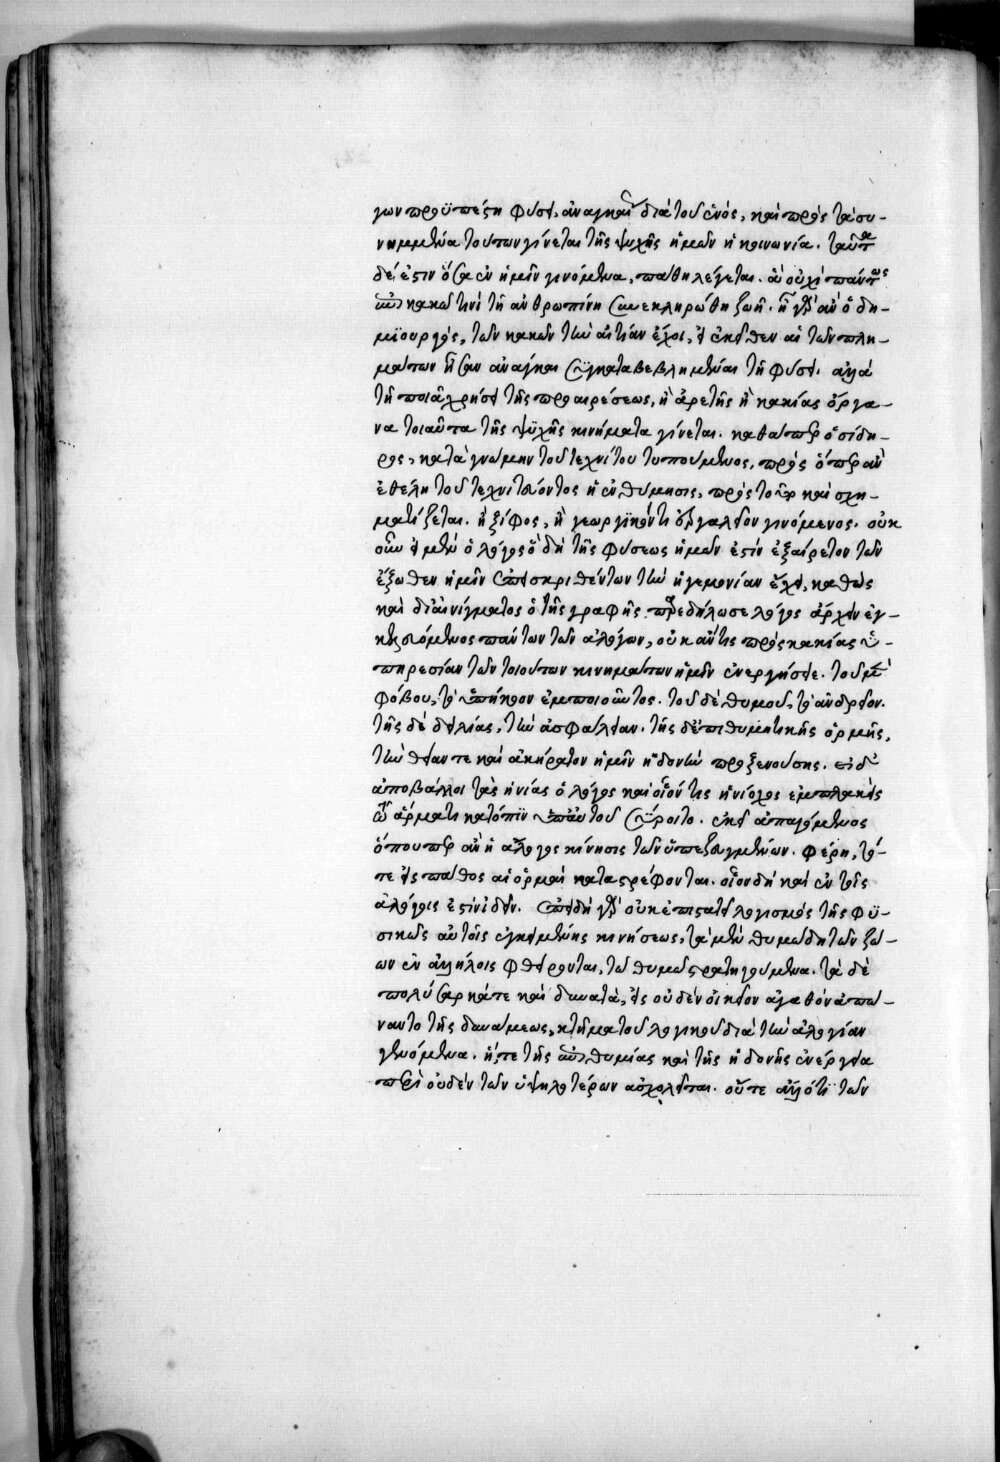 γων προϋπέστη φύσει, ἀναγκαί διὰ τοῦ ἑνός, καὶ πρὸς τὰ συ-
νημμένα τούτων γίνεται τῆς ψυχῆς ἡμῶν ἡ κοινωνία. ταῦτα
δέ ἐστιν ὅσα ἐν ἡμῖν γινόμενα, πάθη λέγεται. ἃ οὐχὶ πάντως
ἐπὶ κακῶ τινὶ τῆ ἀνθρωπίνη συνεκληρώθη ζωῆ. ἢ γὰρ ἂν ὁ δη-
μιουργὸς, τῶν κακῶν τὴν αἰτίαν ἔχοι, εἰ ἐκεῖθεν αἱ τῶν πλη-
μάτων ἦσαν ἀνάγκαι συγκαταβεβλημέναι τῆ φύσει. ἀλλὰ
τῆ ποιᾶ χρήσει τῆς προαιρέσεως, ἢ ἀρετῆς ἢ κακίας ὄργα-
να τοιαῦτα τῆς ψυχῆς κινήματα γίνεται. καθάπερ ὁ σίδη-
ρος, κατὰ γνώμην τοῦ τεχνίτου τυπούμενος, πρὸς ὅπερ ἂν
ἐθέλη τοῦ τεχνιτεύοντος ἡ ἐνθύμησις, πρὸς τοῦτο καὶ σχη-
ματίζεται. ἢ ξίφος, ἢ γεωργικόν τι ἐργαλεῖον γινόμενος. οὐκ
οῦν εἰ μὲν ὁ λόγος ὃ δὴ τῆς φύσεως ἡμῶν ἐστὶν ἐξαίρετον τῶν
ἔξωθεν ἡμῖν ἐπεισκριθέντων τὴν ἡγεμονίαν ἔχει, καθὼς
καὶ δι αἰνίγματος ὁ τῆς γραφῆς παρεδήλωσε λόγος ἄρχειν ἐγ-
κελευόμενος πάντων τῶν ἀλόγων, οὐκ ἄν τις πρὸς κακίας ὑ-
πηρεσίαν τῶν τοιούτων κινημάτων ἡμῖν ἐνεργήσειε. τοῦ μὲν
φόβου, τὸ ὑπήκοον ἐμποιοῦντος. τοῦ δὲ θυμοῦ, τὸ ἀνδρεῖον.
τῆς δὲ δειλίας, τὴν ἀσφάλειαν. τῆς δ ἐπιθυμητικῆς ὁρμῆς,
τὴν θείαν τε καὶ ἀκήρατον ἡμῖν ἡδονὴν προξενούσης. εἰ δὲ
ἀποβάλλοι τὰς ἡνίας ὁ λόγος καὶ οἷόν τις ἡνίοχος ἐμπλακεὶς
τῶ ἅρματι κατόπϊν ὑπ αὐτοῦ σύροιτο. ἐκεῖ ἀπαγόμενος
ὅπου περ ἂν ἡ ἄλογος κίνησις τῶν ὑπεζευγμένων. φέρη, τό-
τε εἰς πάθος αἱ ὁρμαὶ καταστρέφονται. οἷον δὴ καὶ ἐν τοῖς
ἀλόγοις ἐστὶν ἰδεῖν. ἐπειδὴ γὰρ οὐκ ἐπιστατεῖ λογισμὸς τῆς φυ-
σικῶς αὐτοῖς ἐγκειμένης κινήσεως, τὰ μὲν θυμώδη τῶν ζώ-
ων ἐν ἀλλήλοις φθείρονται, τῶ θυμῶ στρατηγούμενα. τὰ δὲ
πολύσαρκά τε καὶ δυνατὰ, εἰς οὐδὲν οἰκεῖον ἀγαθὸν ἀπώ-
ναντο τῆς δυνάμεως, κτῆμα τοῦ λογικοῦ διὰ τὴν ἀλογίαν
γενόμενα. ἥ τε τῆς ἐπιθυμίας καὶ τῆς ἡδονῆς ἐνέργεια
περὶ οὐδὲν τῶν ὑψηλοτέρων ἀσχολεῖται. οὔτε ἄλλό τι τῶν